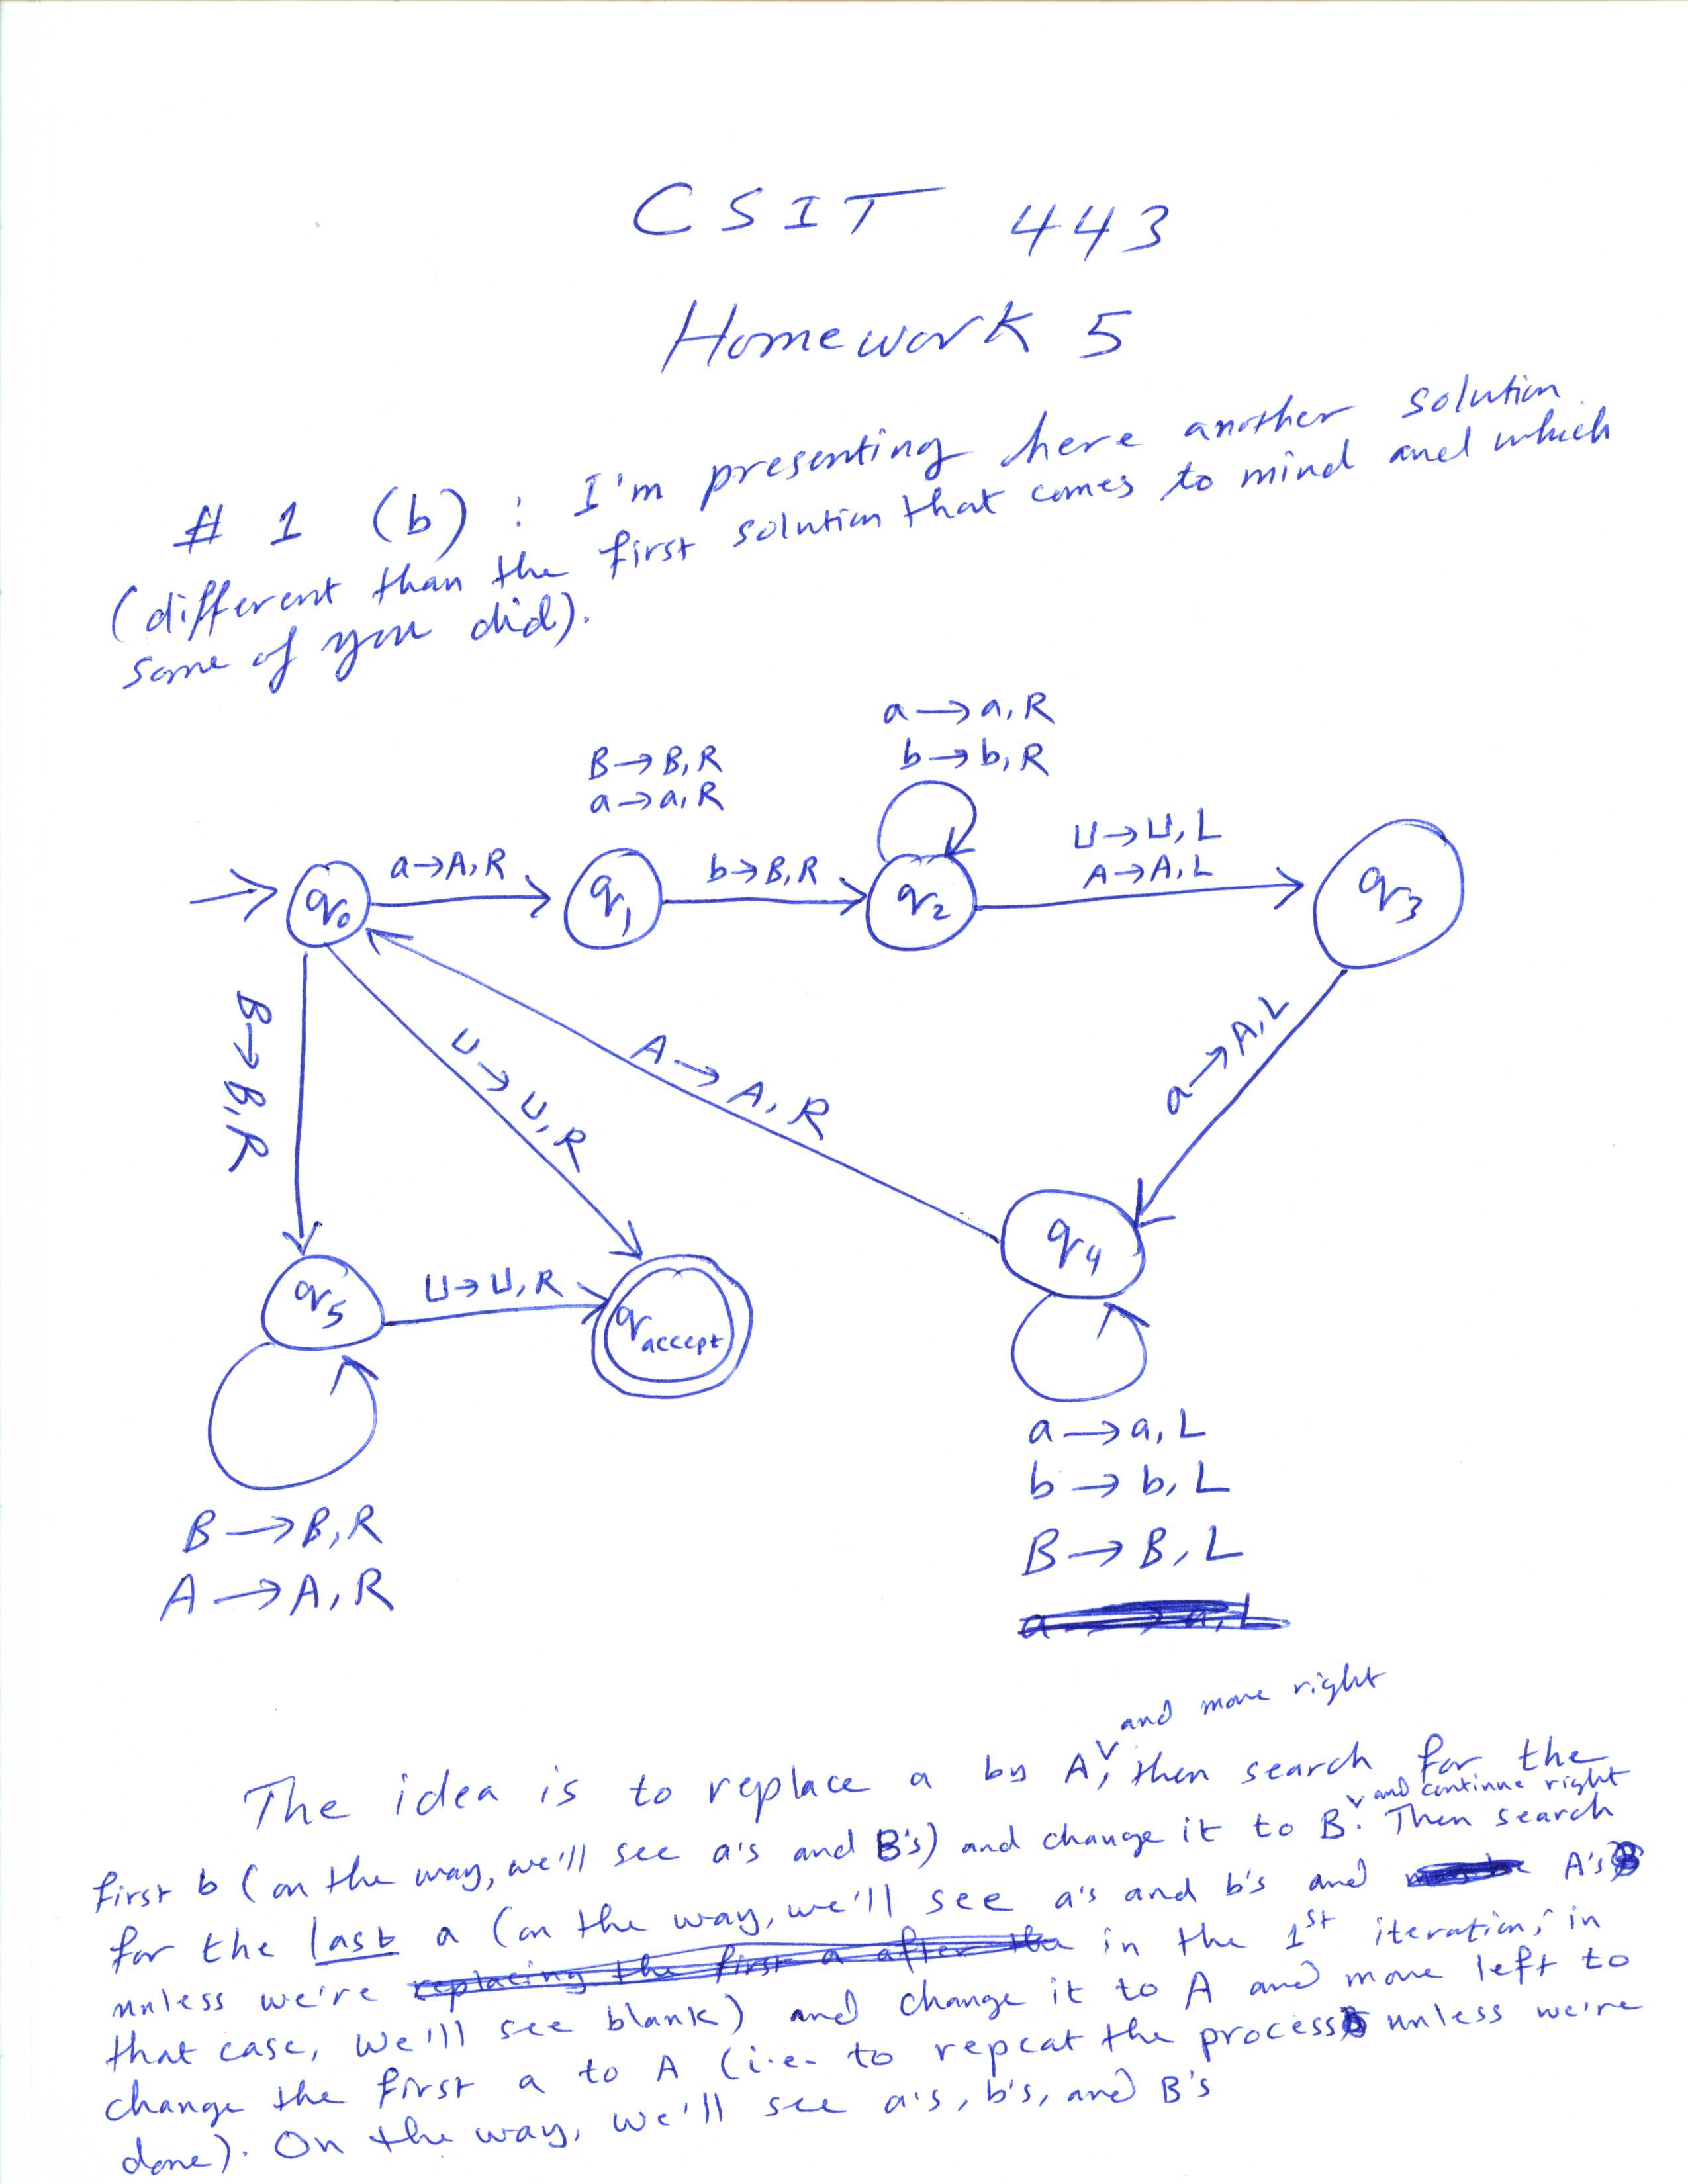 CSIT 443
Homework 5
# 1 (b) : I'm presenting here another solution
(different than the first solution that comes to mind and which
some of you did).
a → a, R
b → b, R
B → B, R
a → a, R
⊔ → ⊔, L
A → A, L
a → A, R
b → B, R
q0
q1
q2
q3
a → A, L
B → B, R
⊔ → ⊔, R
A → A, R
q4
q5
⊔ → ⊔, R
q accept
a → a, L
b → b, L
B → B, L
a → a, L
B → B, R
A → A, R
and move right
The idea is to replace a by A, then search for the
and continue right
first b (on the way, we'll see a's and B's) and change it to B. Then search
for the last a (on the way, we'll see a's and b's and A's
unless we're replacing the first a after the in the 1st iteration; in
that case, we'll see blank) and change it to A and move left to
change the first a to A (i.e. to repeat the process unless we're
done). On the way, we'll see a's, b's, and B's